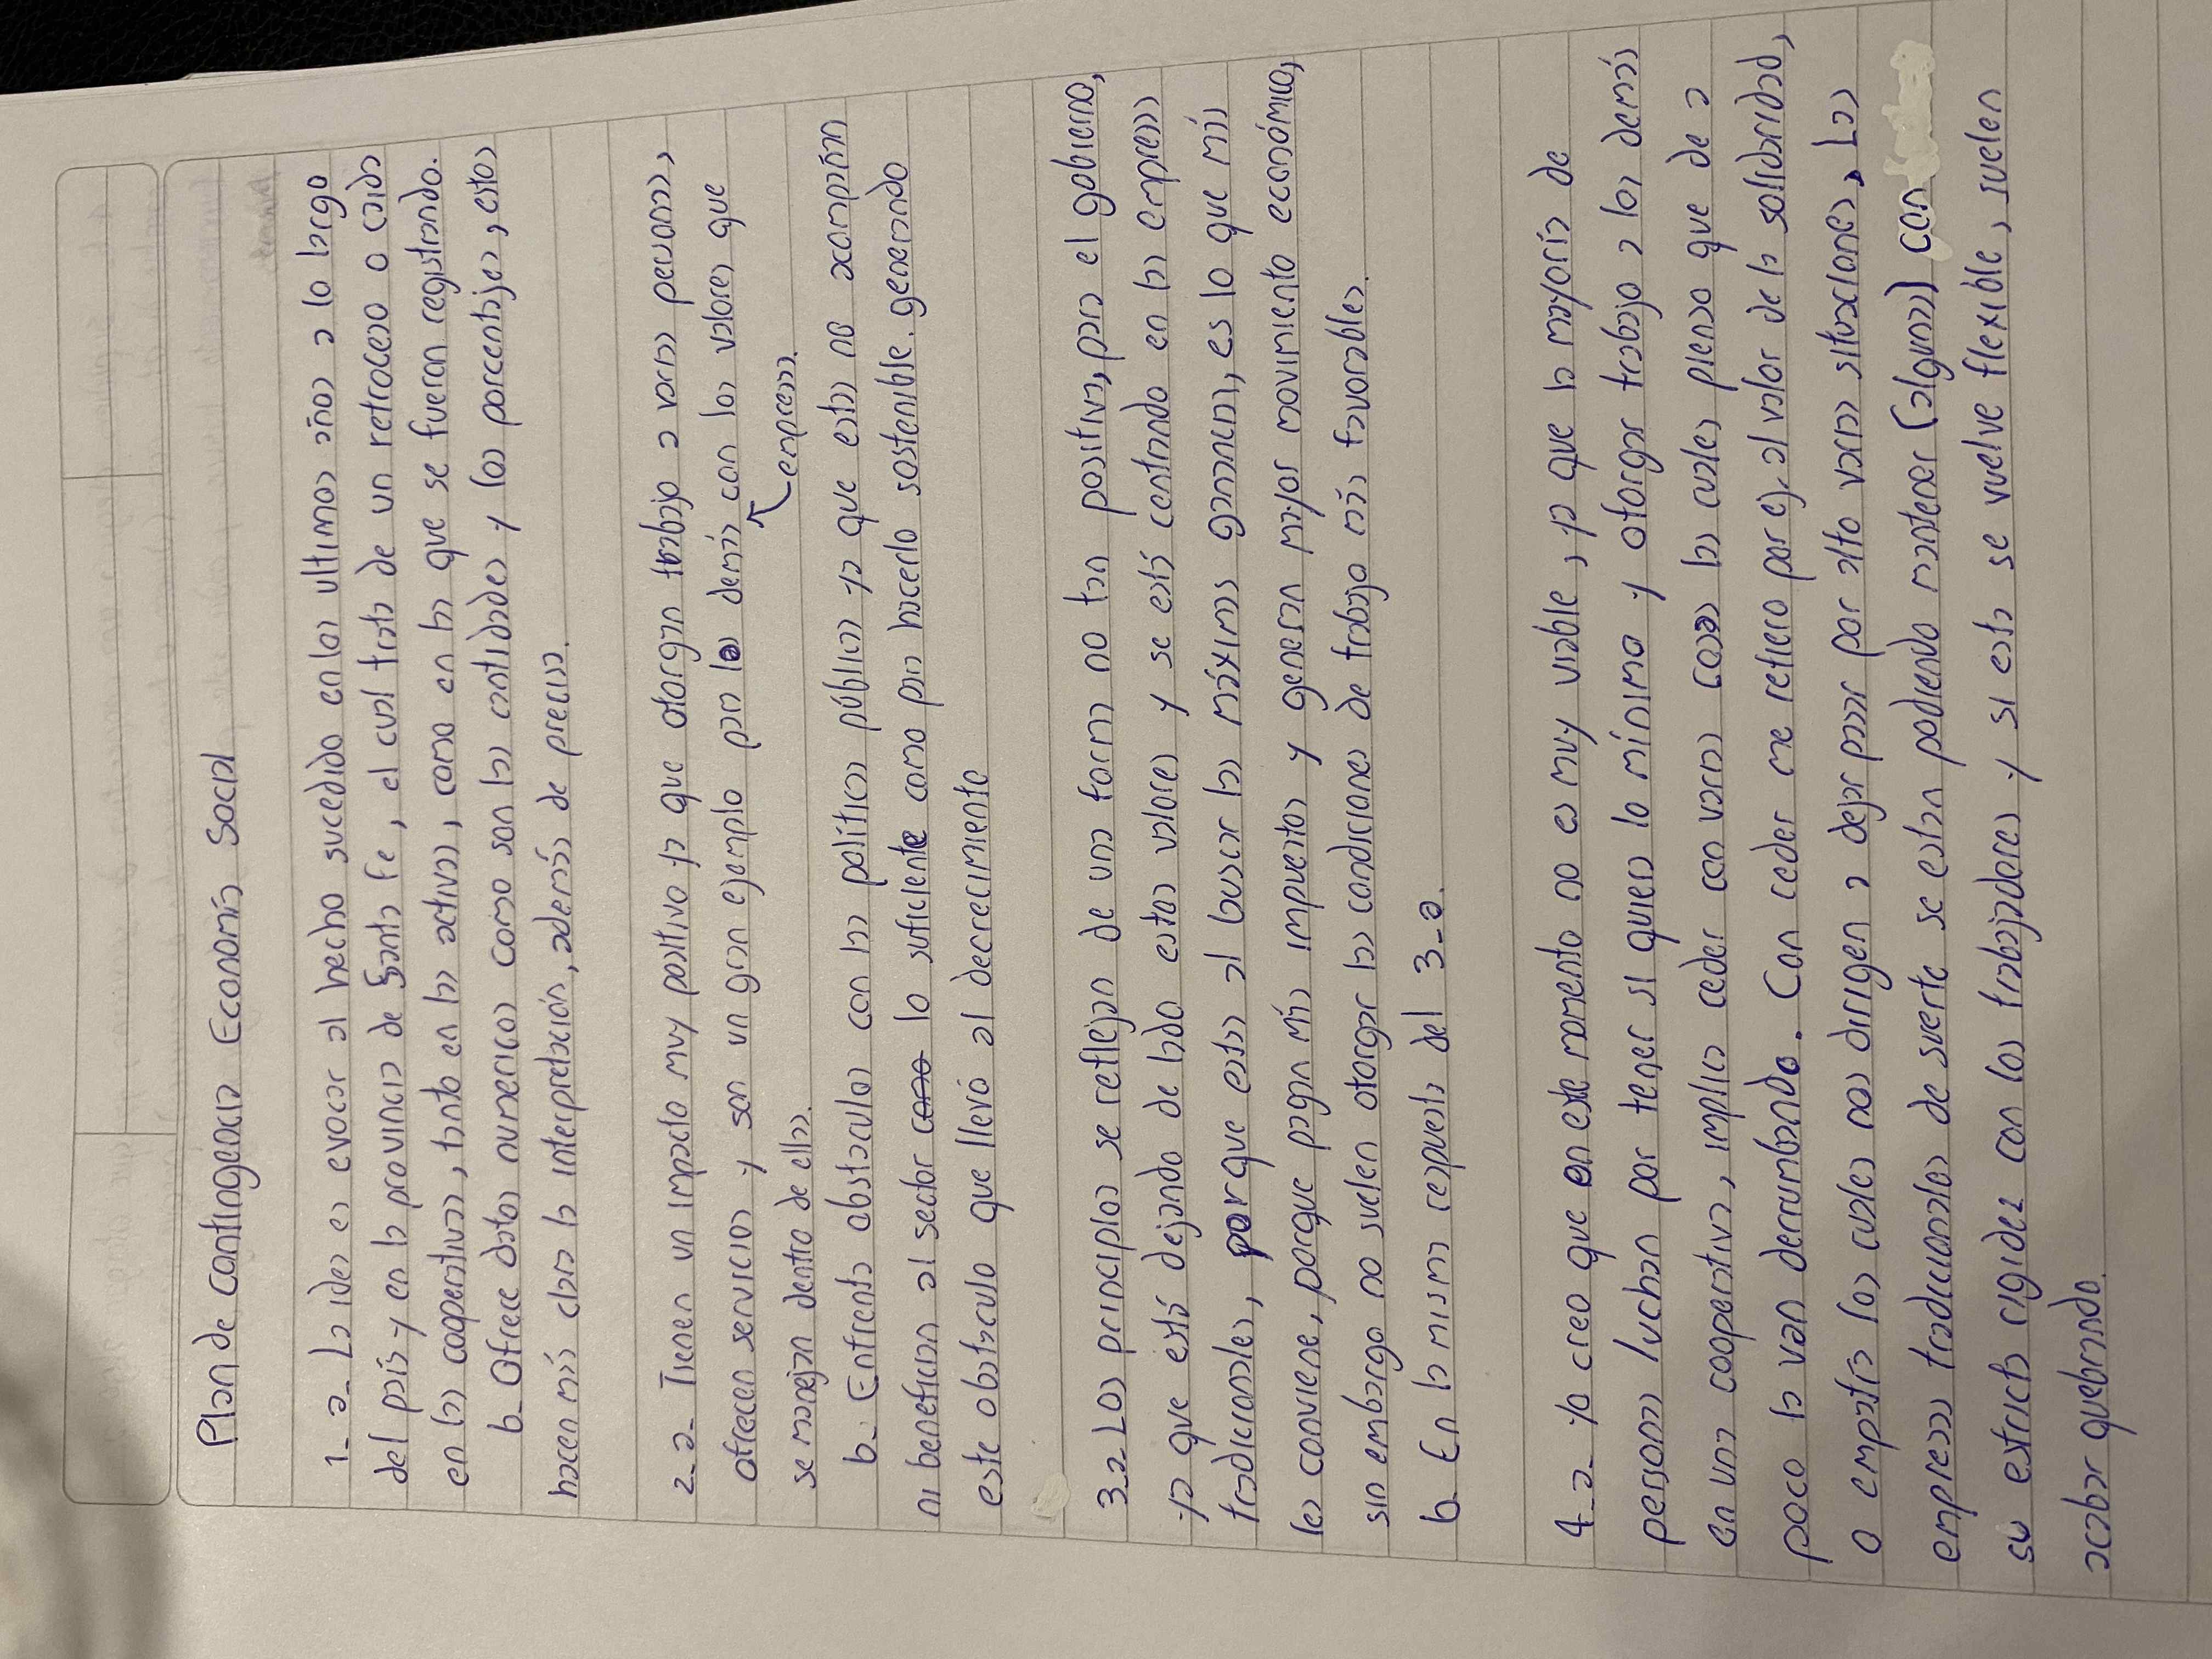 Plan de contingencia Economía Social
1_a_ La idea es evocar al hecho sucedido en los ultimos años a lo largo
del país y en la provincia de Santa Fe, el cual trata de un retroceso o caida
en las cooperativas, tanto en las activas, como en las que se fueron registrando.
b_ Ofrece datos numericos como son las cantidades y los porcentajes, estos
hacen más clara la interpretación, además de precisa.
2_a_ Tienen un impacto muy positivo ya que otorgan trabajo a varias personas,
ofrecen servicios y son un gran ejemplo para las demás con los valores que
empresas.
se manejan dentro de ellas.
b_ Enfrenta obstaculos con las politicas públicas ya que estas no acompañan
ni benefician al sector como lo suficiente como para hacerlo sostenible. generando
este obstaculo que llevó al decrecimiento
3_a_ Los principios se reflejan de una forma no tan positiva, para el gobierno,
ya que está dejando de lado estos valores y se está centrando en las empresas
tradicionales, porque estas al buscar las máximas ganancias, es lo que más
les conviene, porque pagan más impuestos y generan mayor movimiento económico,
sin embargo no suelen otorgar las condiciones de trabajo más favorables.
b_ En la misma respuesta del 3_a.
4_a_ Yo creo que en este momento no es muy viable, ya que la mayoría de
personas luchan por tener si quiera lo mínimo y otorgar trabajo a los demás
en una cooperativa, implica ceder con varias cosas las cuales pienso que de a
poco la van derrumbando. Con ceder me refiero por ej. al valor de la solidaridad,
o empatía los cuales nos dirigen a dejar pasar por alto varias situaciones, Las
empresas tradicionales de suerte se estan pudiendo mantener (algunas) con
su estricta rigidez con los trabajadores y si esta se vuelve flexible, suelen
acabar quebrando.